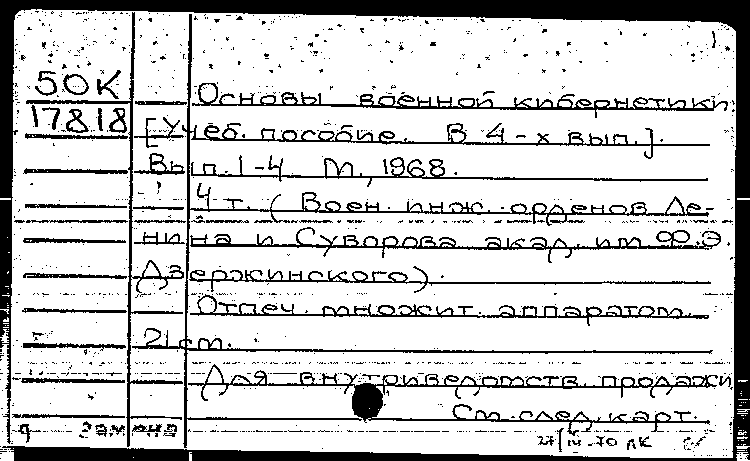 1
50К
17818
Основы военной кибернетики
[Учеб. пособие. В 4-х вып.].
Вып. 1-4 М., 1968.
4 т. (Воен. инж. орденов Ле-
нина и Суворова акад. им. Ф.Э.
Дзержинского).
Отпеч. множит. аппаратом.
21 см.
Для внутриведомств. продажи
См. след. карт.
замена
27/III-70 ЛК